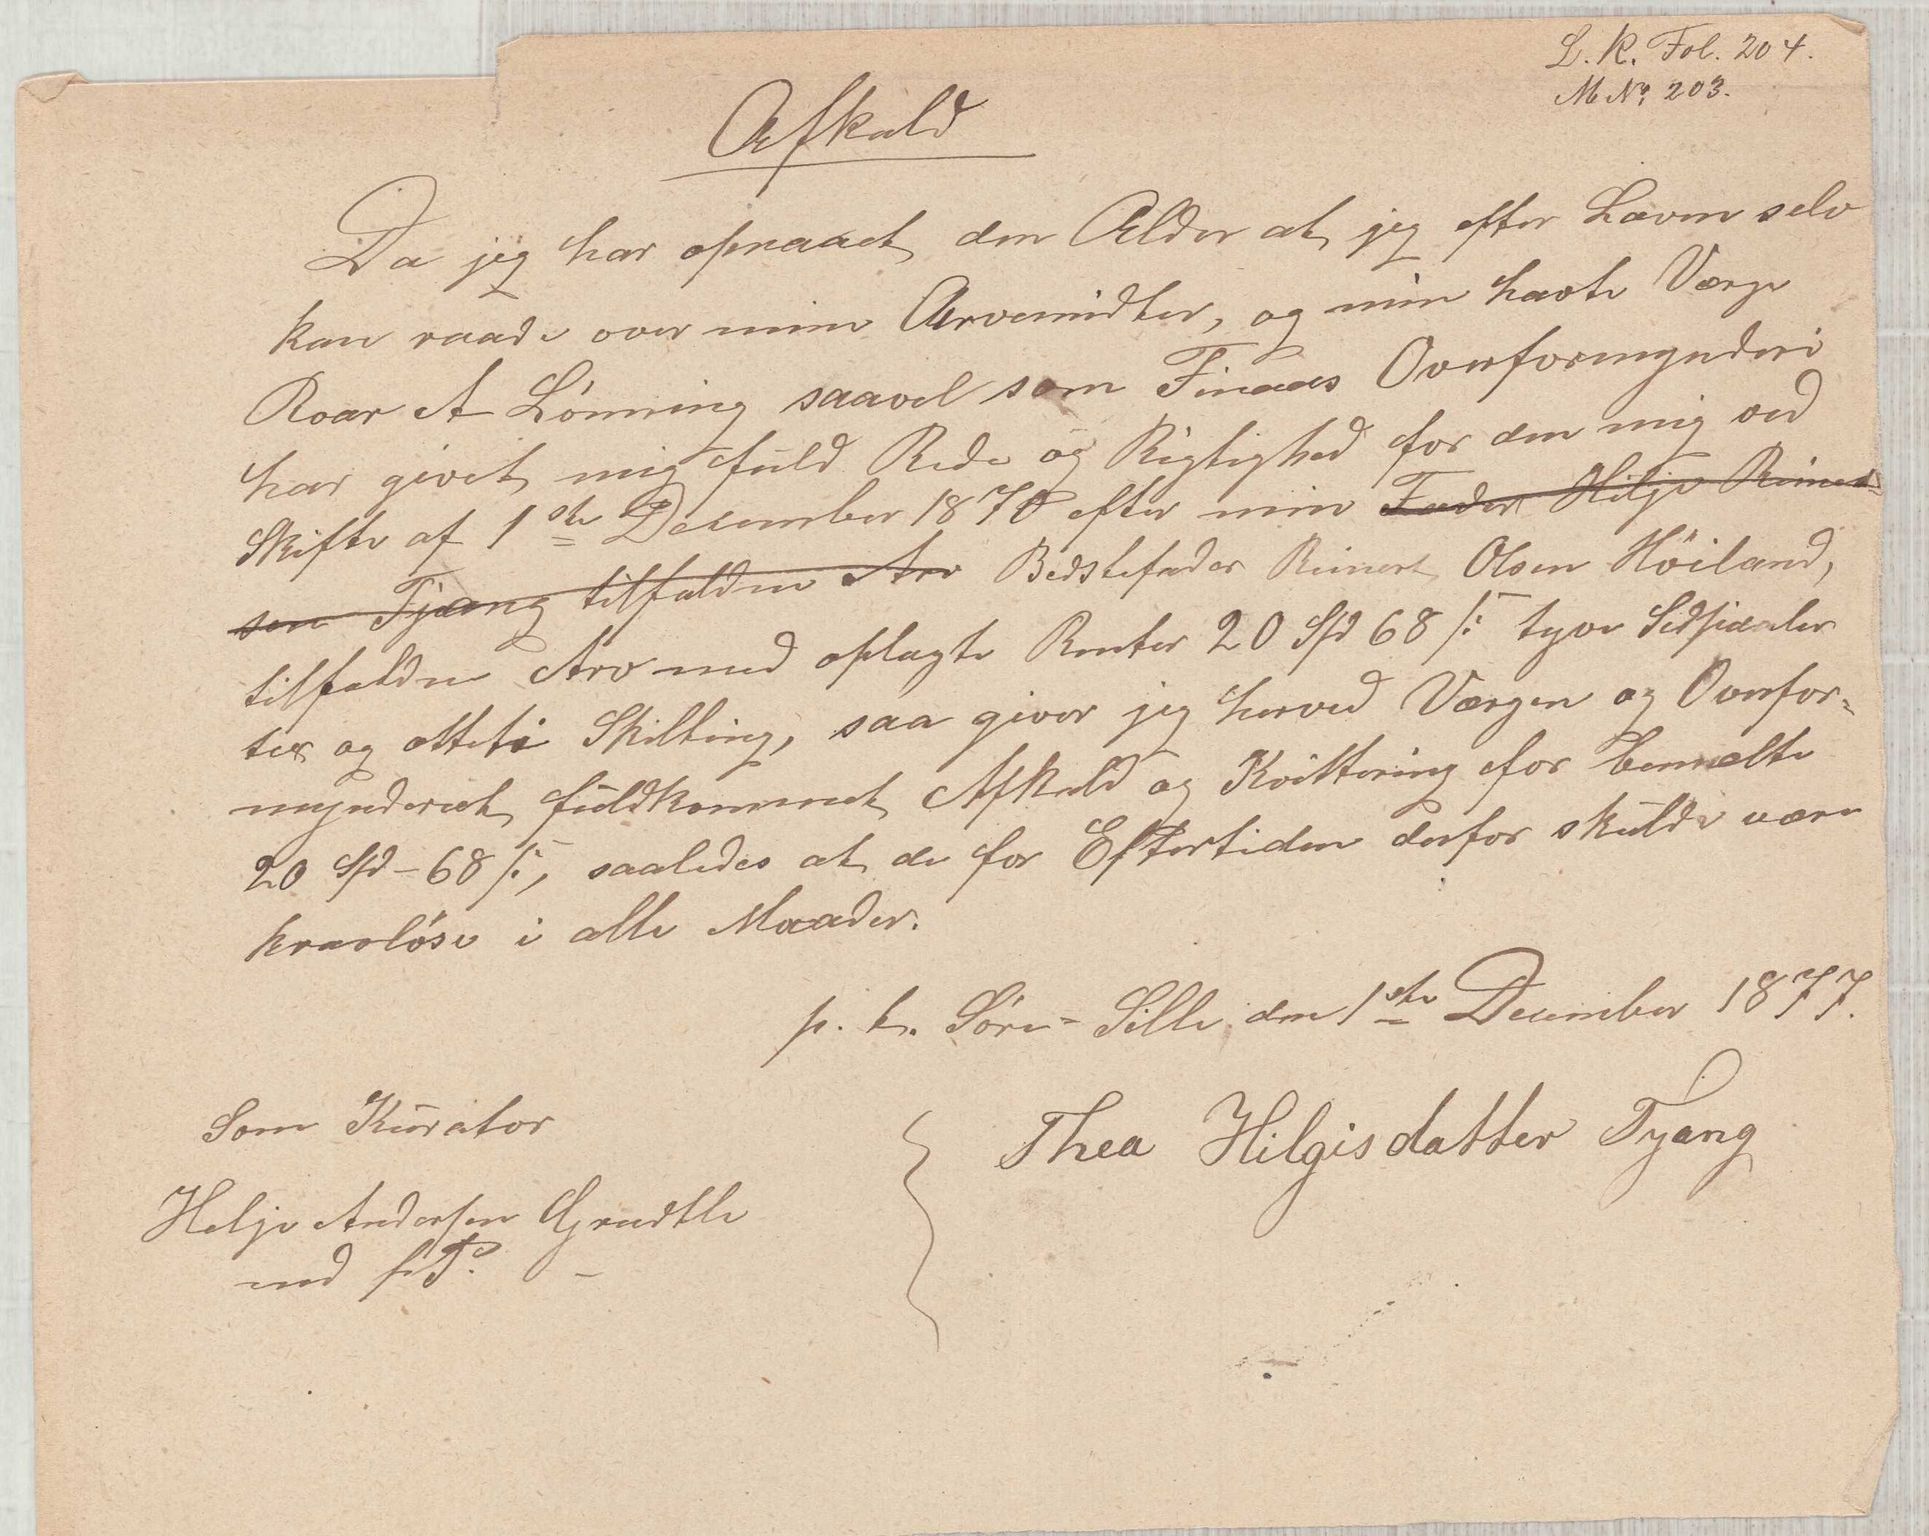 L. R. Fol. 204.
M No. 203.
Afkald
Da jeg har opnaaet den Alder at jeg efter Loven selv
kan raade over mine Arvemidler, og min havte Værge
Roar A Lönning saavel som Finaas Overformynderi
har givet mig fuld Rede og Rigtighed for den mig ved
Skifte af 1ste December 1870 efter min Fader Hilje Reinert-
sen Tjæng tilfaldne Arv Bedstefader Reinert Olsen Höiland,
tilfaldne Arv med oplagte Renter 20 Spd 68 s. tyve
og otteti Skilling, saa giver jeg herved Værgen og Overfor-
mynderiet fuldkommet Afkald og Kvittering for bemelte
20 Spd - 68 s., saaledes at de for Eftertiden derfor skulde være
kravlöse i alle Maader.
p. t. Söre-Lille den 1ste December 1877.
Som Kurator
Thea Hilgisdatter Tyæng
Helje Andersen
med p. P.